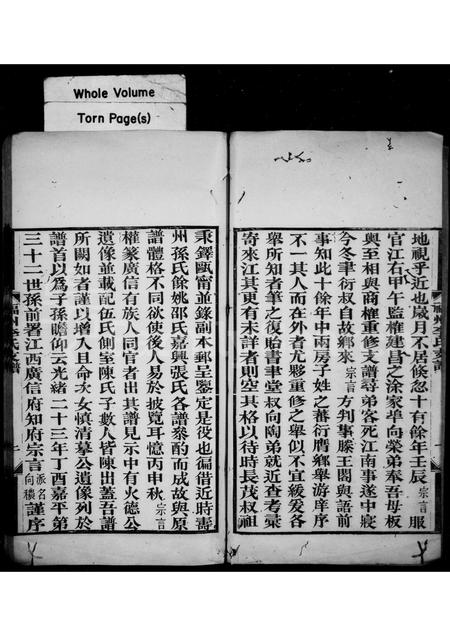 Whole Volume
Torn Page(s)
地視乎近也歲月不居倐忽十有餘年壬辰宗言服
官江右甲午監榷建昌之涂家埠向榮弟奉吾母板
輿至相與商榷重修支譜尋弟客死江南事遂中寢
今冬聿衍叔自故鄉來宗言方判事滕王閣與語前
事知此十餘年中兩房子姓之蕃衍膺鄉舉游庠序
不一其人而在外者尤夥重修之舉似不宜緩爰各
舉所知者之復貽書聿堂叔向陶弟就近查考彙
寄來江其更有未詳者則空其格以待時長茂叔祖
秉鐸甌甯並錄副本郵呈鑒定是役也徧借近時壽
州孫氏餘姚邵氏嘉興張氏各譜叅酌而成故與原
譜體格不同欲使後人易於披覽耳憶丙申秋宗言
權篆廣信有族人同官者出其譜見示中有火德公
遺像並載配伍氏側室陳氏子數人皆陳出蓋吾譜
所闕如者謹以增入且命次女慎清摹公遺像列於
譜首以爲子孫瞻仰云光緒二十三年丁酉嘉平第
三十二世孫前署江西廣信府知府宗言派名向穠謹序